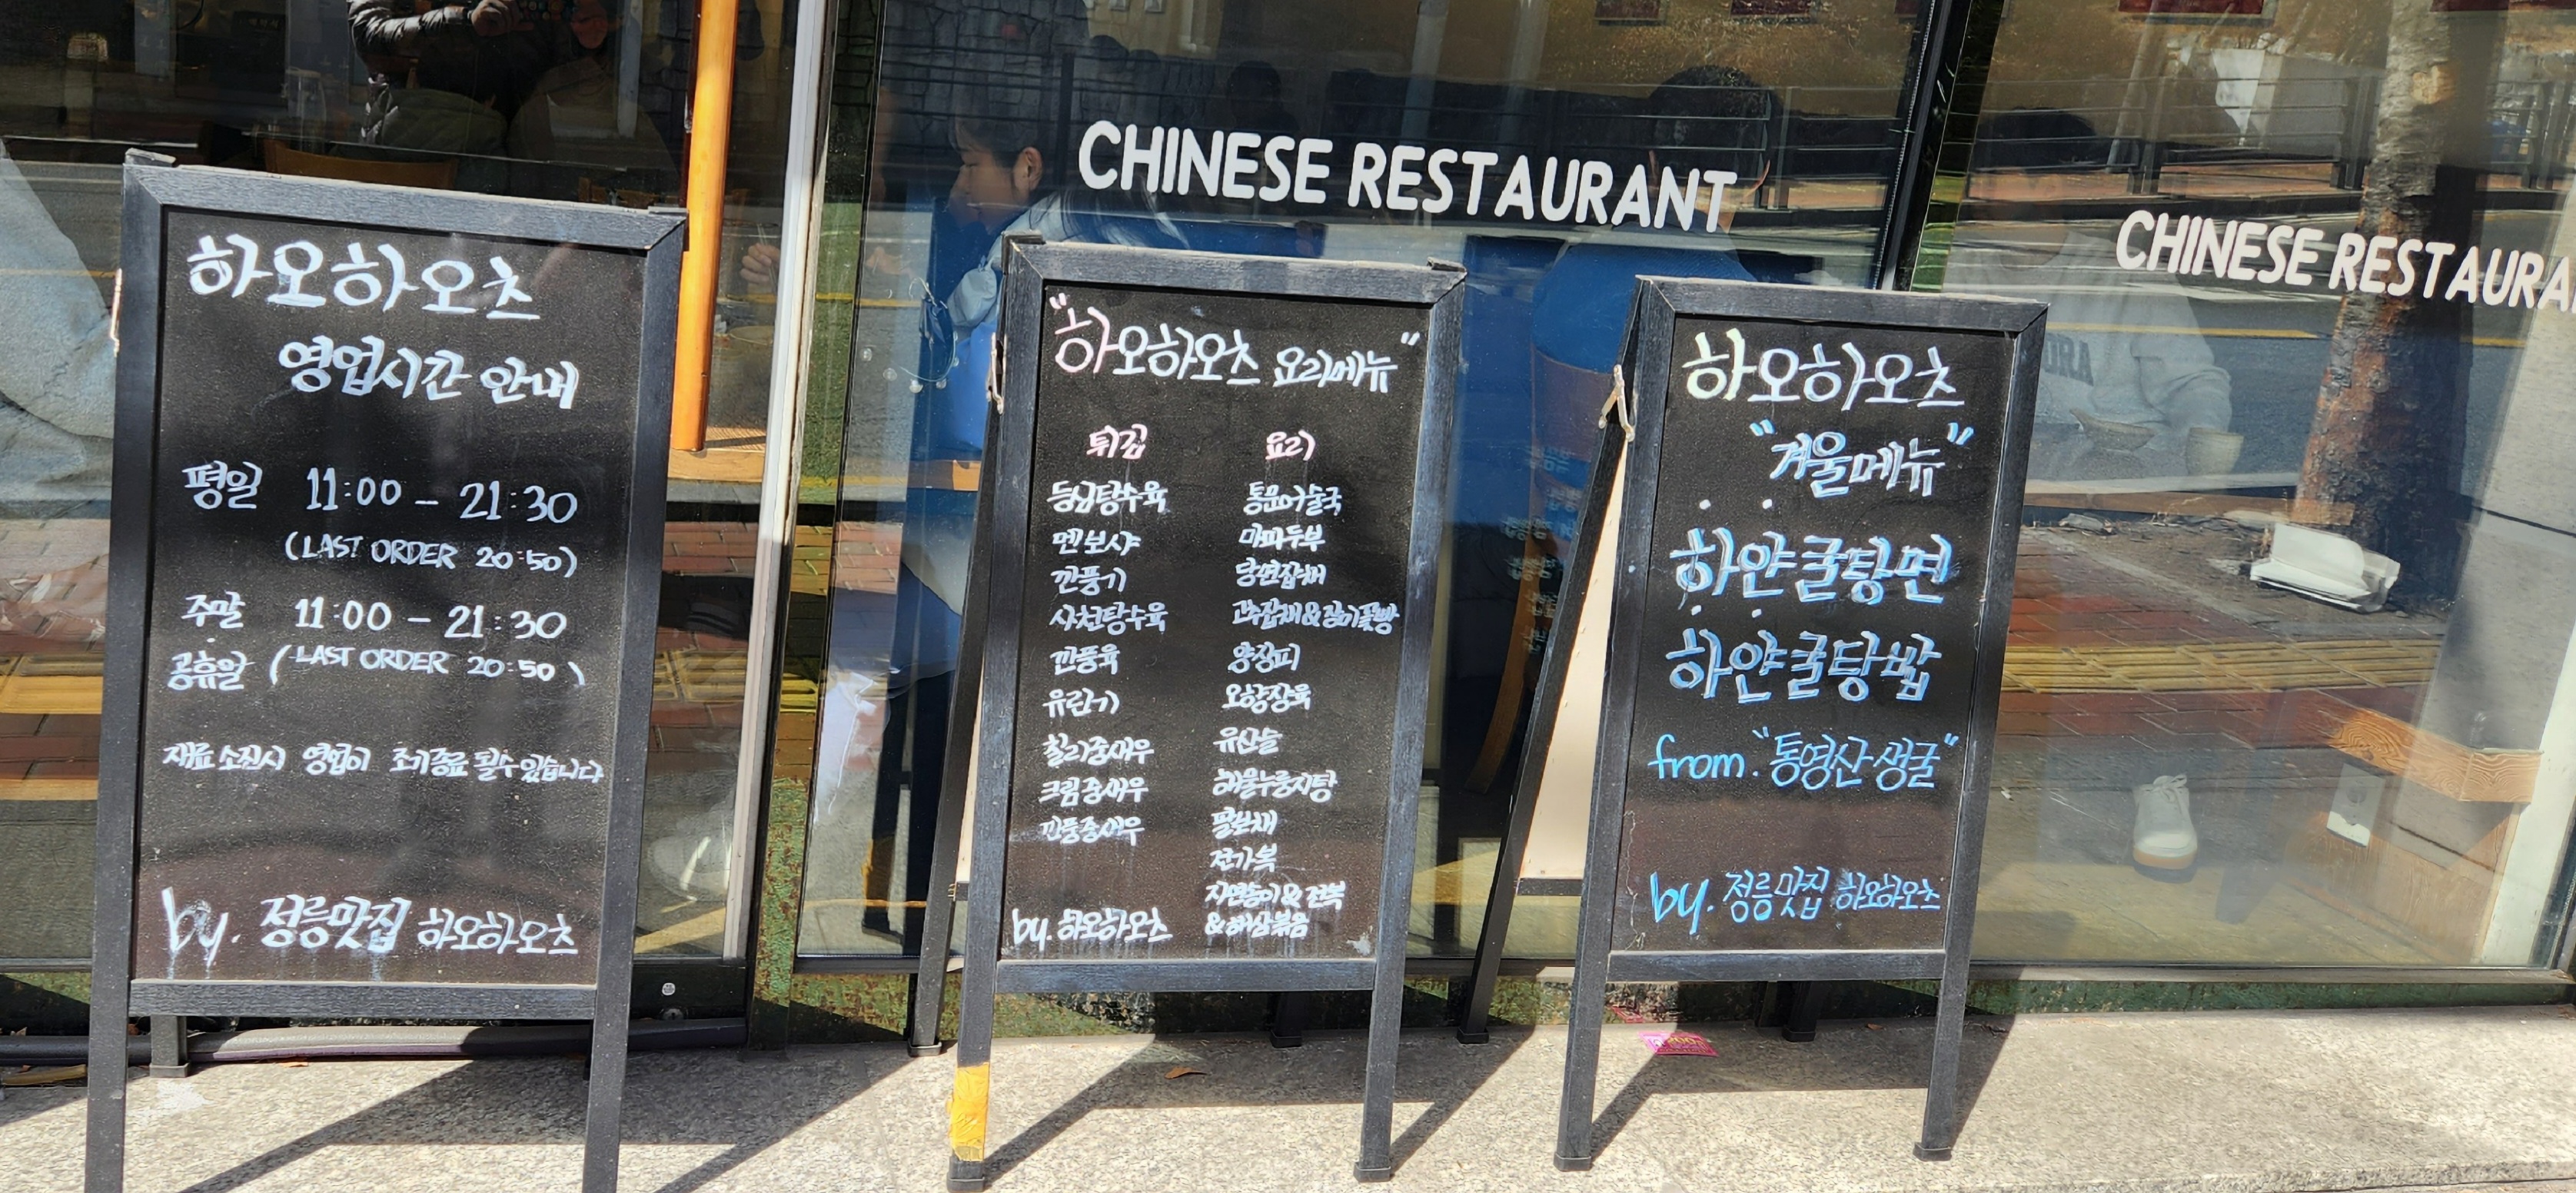 CHINESE RESTAURANT
CHINESE RESTAURA
하오하오츠
영업시간 안내
평일 11:00 - 21:30
(LAST ORDER 20:50)
주말 11:00 - 21:30
공휴일 (LAST ORDER 20:50)
재료 소진시 영업이 조기종료 될수 있습니다
by. 정릉맛집 하오하오츠
"하오하오츠 요리메뉴"
튀김
등심탕수육
멘보샤
깐풍기
사천탕수육
깐풍육
유린기
칠리중새우
크림중새우
깐풍중새우
by. 하오하오츠
요리
통문어술국
마파두부
당면잡채
고추잡채&장미꽃빵
양장피
오향장육
유산슬
해물누룽지탕
팔보채
전가복
자연송이&전복
&해삼볶음
하오하오츠
"겨울메뉴"
하얀굴탕면
하얀굴탕밥
from. "통영산 생굴"
by. 정릉맛집 하오하오츠